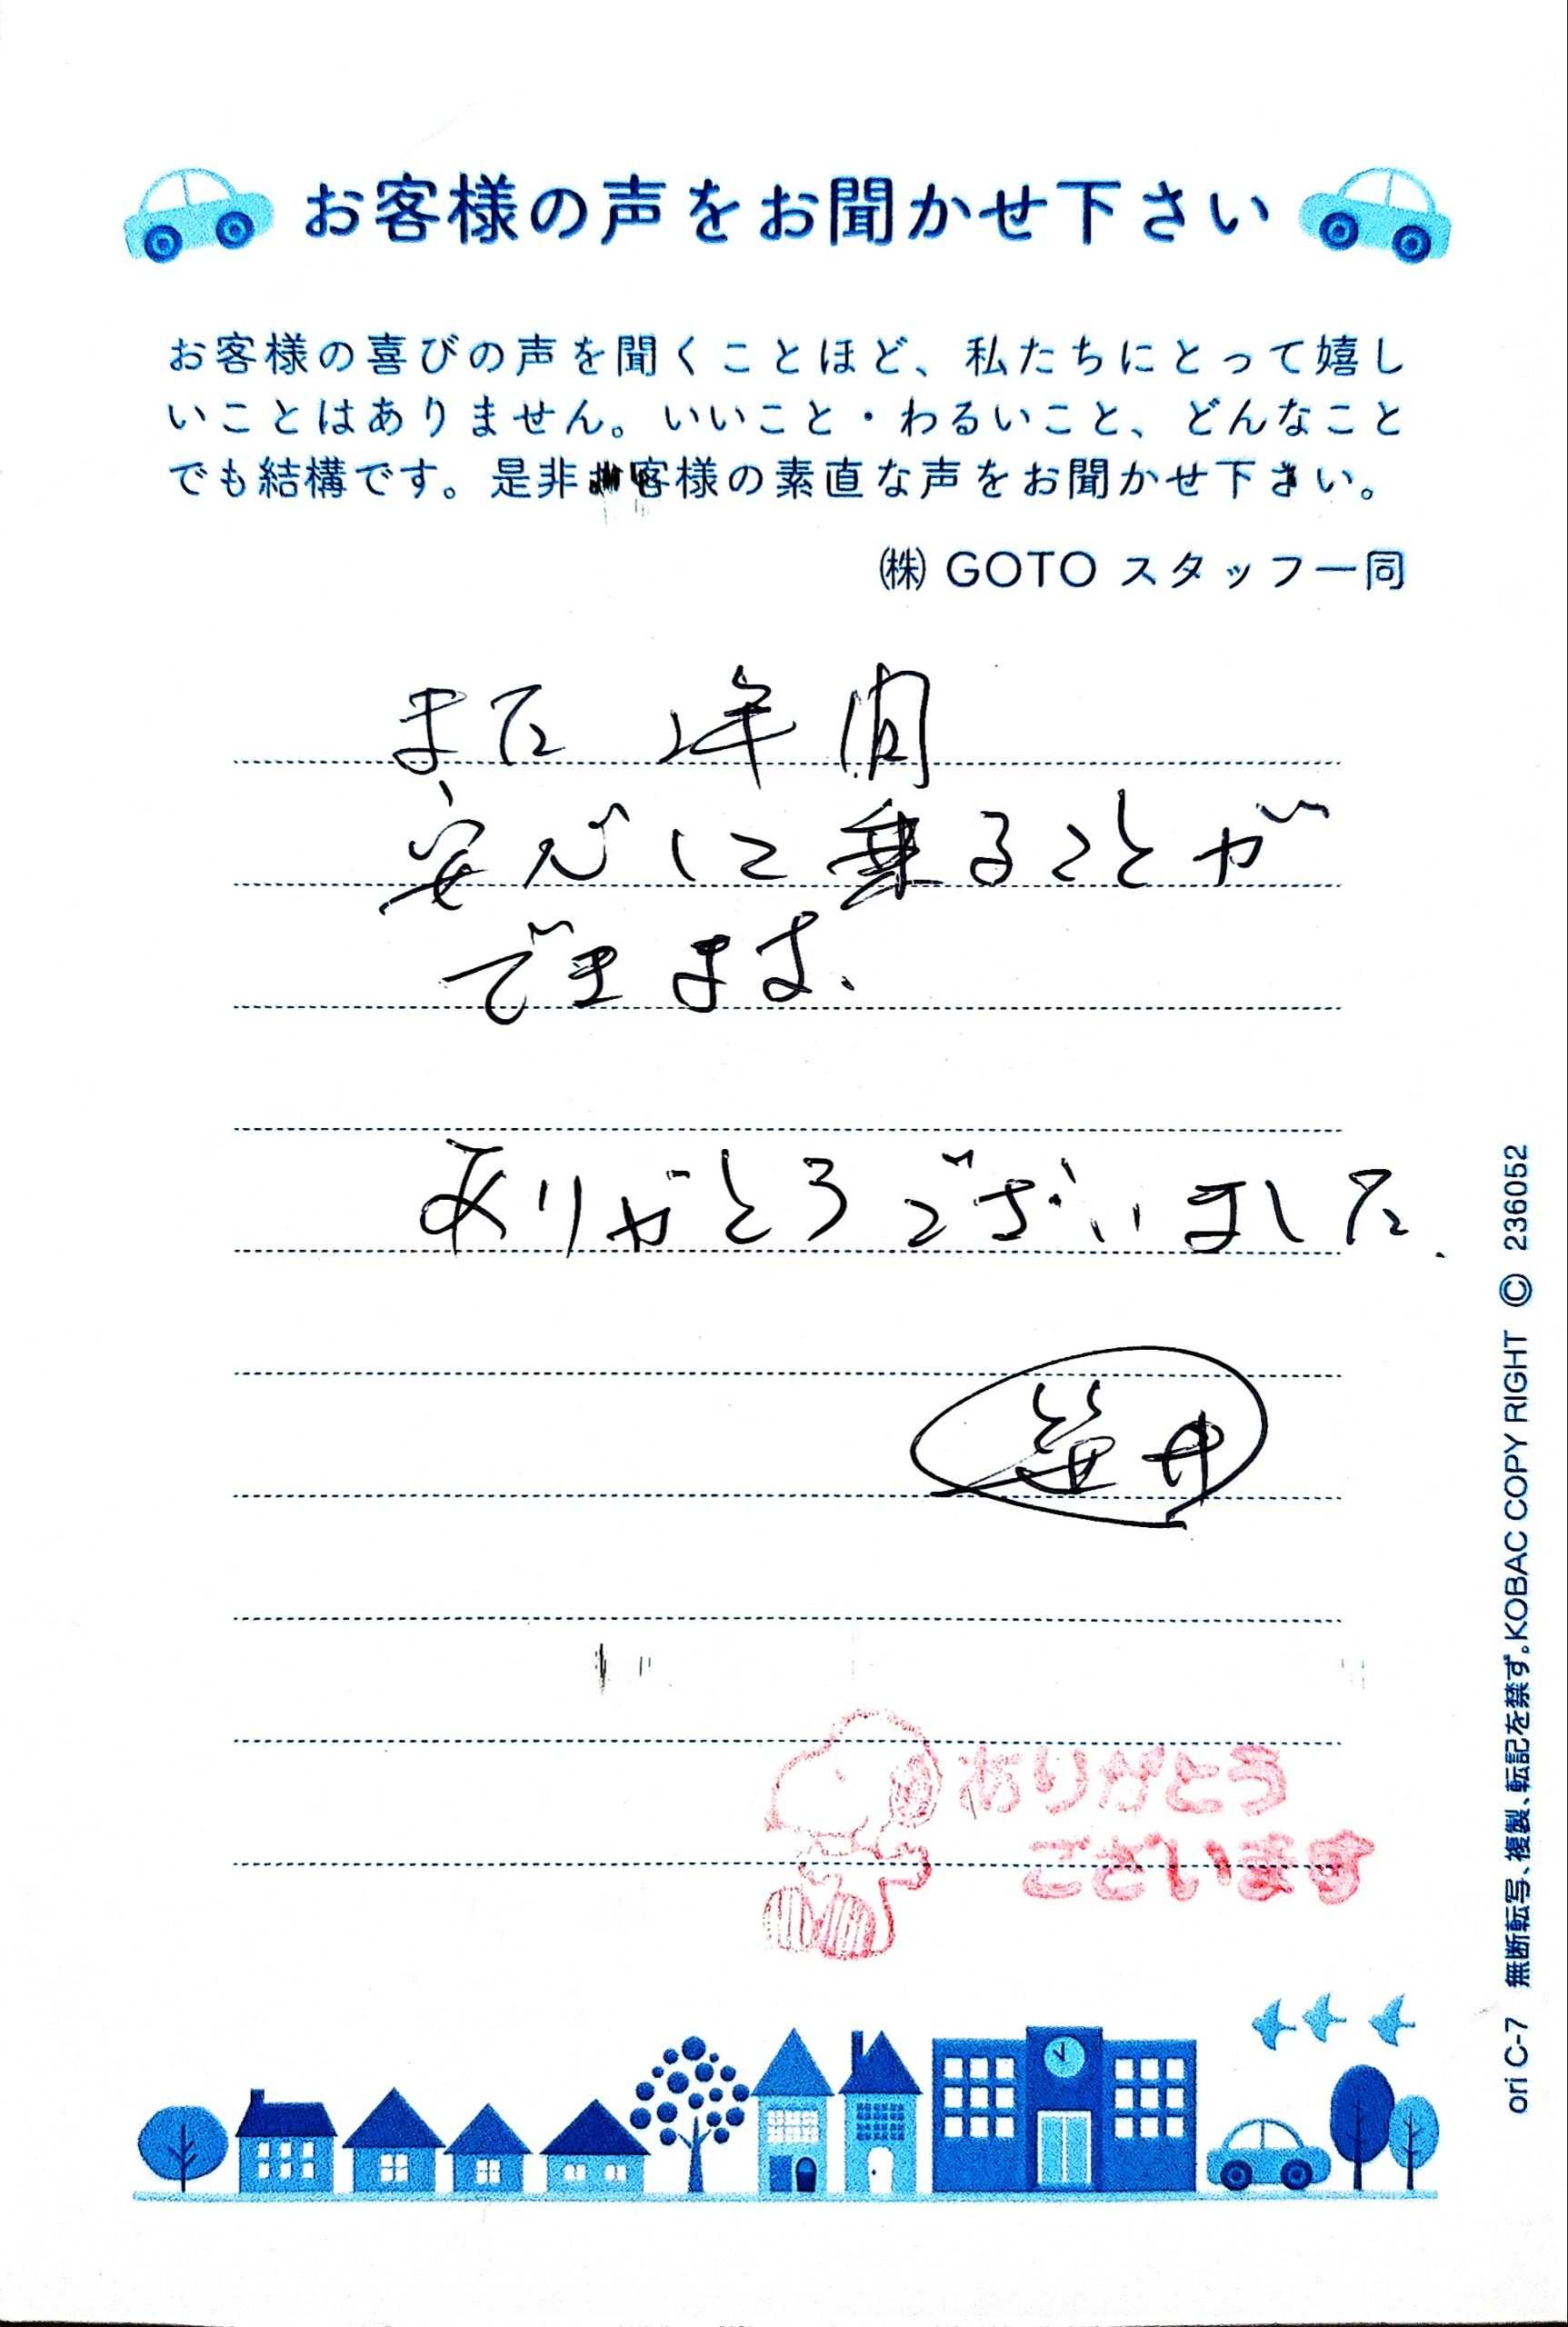 お客様の声をお聞かせ下さい
お客様の喜びの声を聞くことほど、私たちにとって嬉し
いことはありません。いいこと・わるいこと、どんなこと
でも結構です。是非お客様の素直な声をお聞かせ下さい。
㈱ GOTO スタッフ一同
また 2年間
安心に乗ることが
できます、
ありがとうございました.
笹井
ありがとう
ございます
ori C-7 無断転写、複製、転記を禁ず。KOBAC COPY RIGHT © 236052